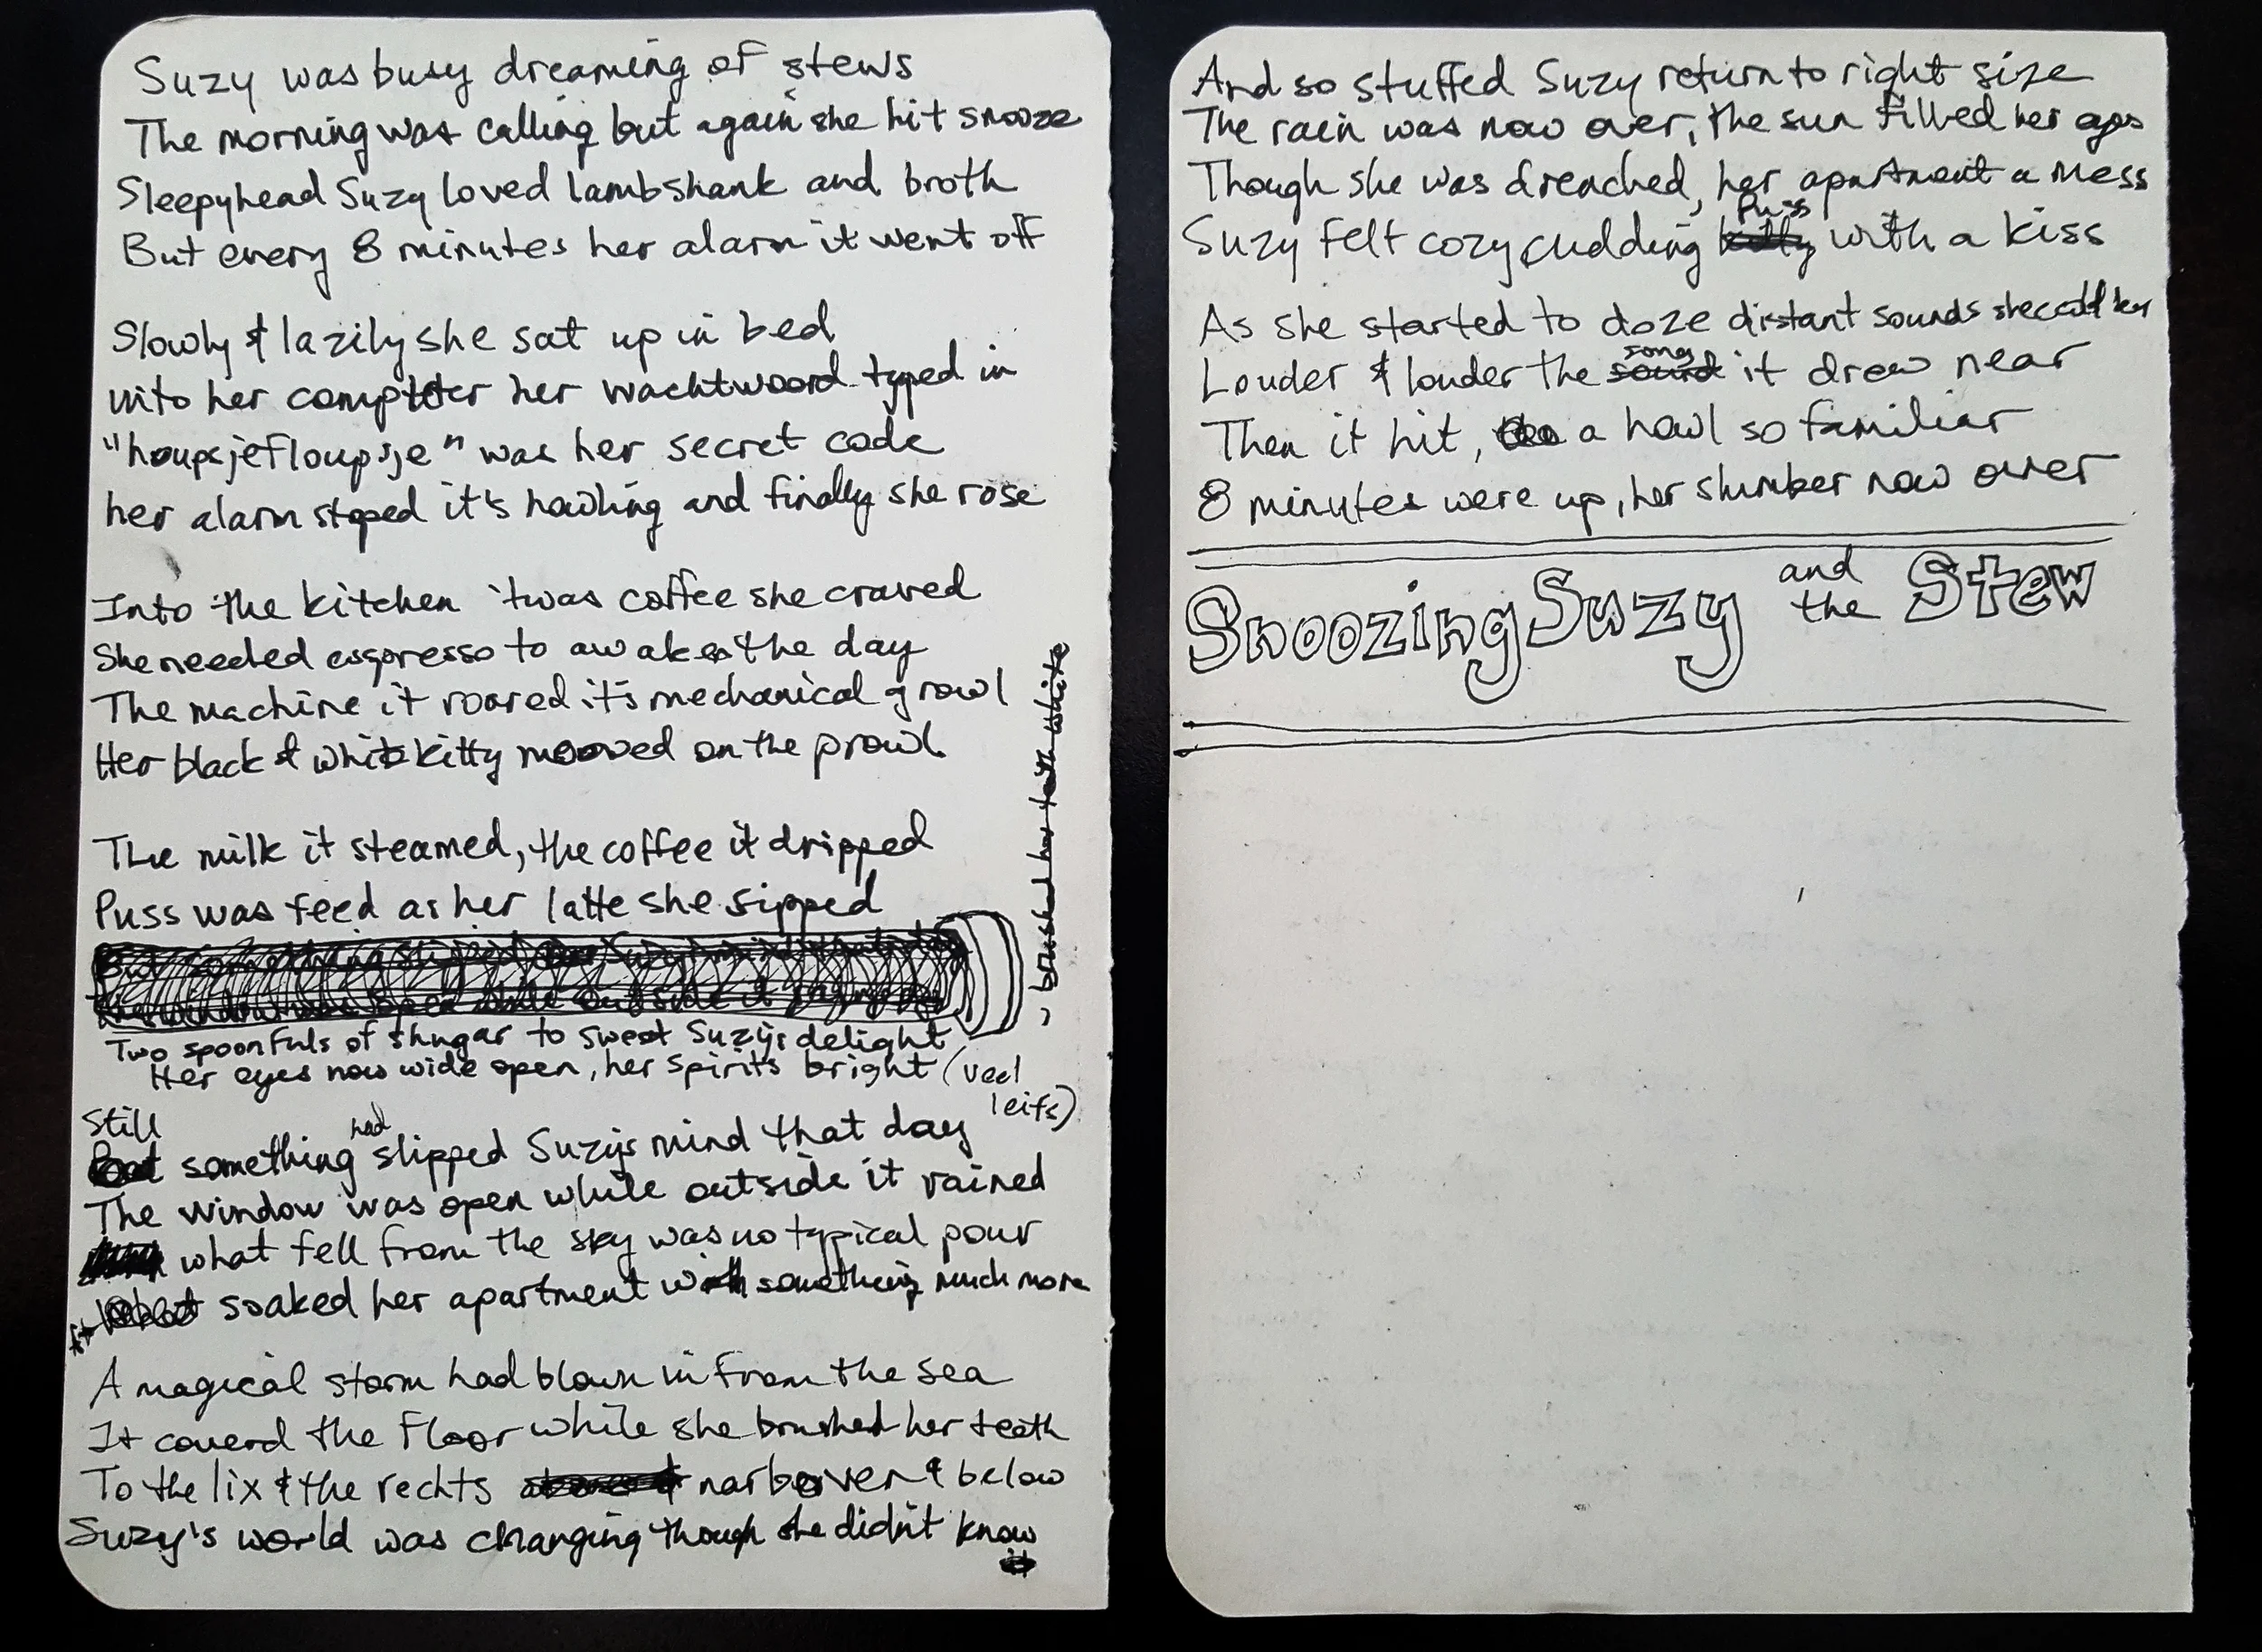 Suzy was busy dreaming of stews
The morning was calling but again she hit snooze
Sleepyhead Suzy loved lambshank and broth
But every 8 minutes her alarm it went off
Slowly & lazily she sat up in bed
into her computer her wachtwoord typed in
"houpsjefloupsje" was her secret code
her alarm stoped it's howling and finally she rose
Into the kitchen 'twas coffee she craved
She needed espresso to awaken the day
The machine it roared it's mechanical growl
Her black & white kitty mooved on the prowl
The milk it steamed, the coffee it dripped
Puss was feed as her latte she sipped
brushed her teeth white
Two spoonfuls of shugar to sweet Suzy's delight
Her eyes now wide open, her spirits bright (veel
leifs)
Still
something had slipped Suzy's mind that day
The window was open while outside it rained
what fell from the sky was no typical pour
it soaked her apartment with something much more
A magical storm had blown in from the sea
It coverd the floor while she brushed her teeth
To the lix & the rechts nar boven & below
Suzy's world was changing though she didn't know
And so stuffed Suzy return to right size
The rain was now over, the sun filled her eyes
Though she was drenched, her apartment a mess
Suzy felt cozy cudding Puss with a kiss
As she started to doze distant sounds she could hear
Louder & louder the song it drew near
Then it hit, a howl so familiar
8 minutes were up, her slumber now over
Snoozing Suzy and the Stew